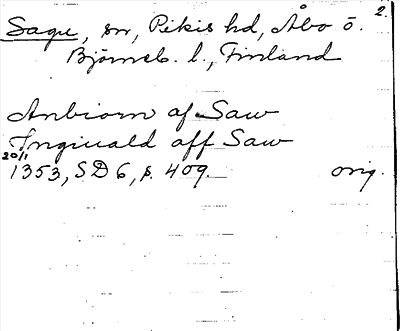 2.
Sagu, sn, Pikis hd, Åbo o.
Björneb. l., Finland
Anbiorn af Saw
Inginald aff Saw
20/1
1353, SD 6, p. 409. orig.